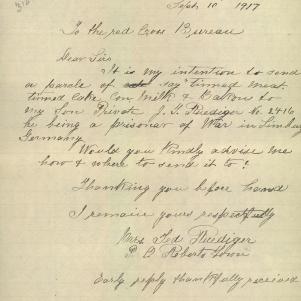 Sept 10 1917
To the red Cross Bureau
Dear Sirs
It is my intention to send
a parcele of say tinned meat
tinned Cake Con Milk & Bacon to
my Son Private J. T. Fluediger No. 2416
he being a prisoner of War in Limburg
Germany
Would you kindly advise me
how & where to send it to?
Thanking you before hand
I remain yours respectfully
Mrs Fed Fluediger
P. O. Roberts town
Early reply thankfully received